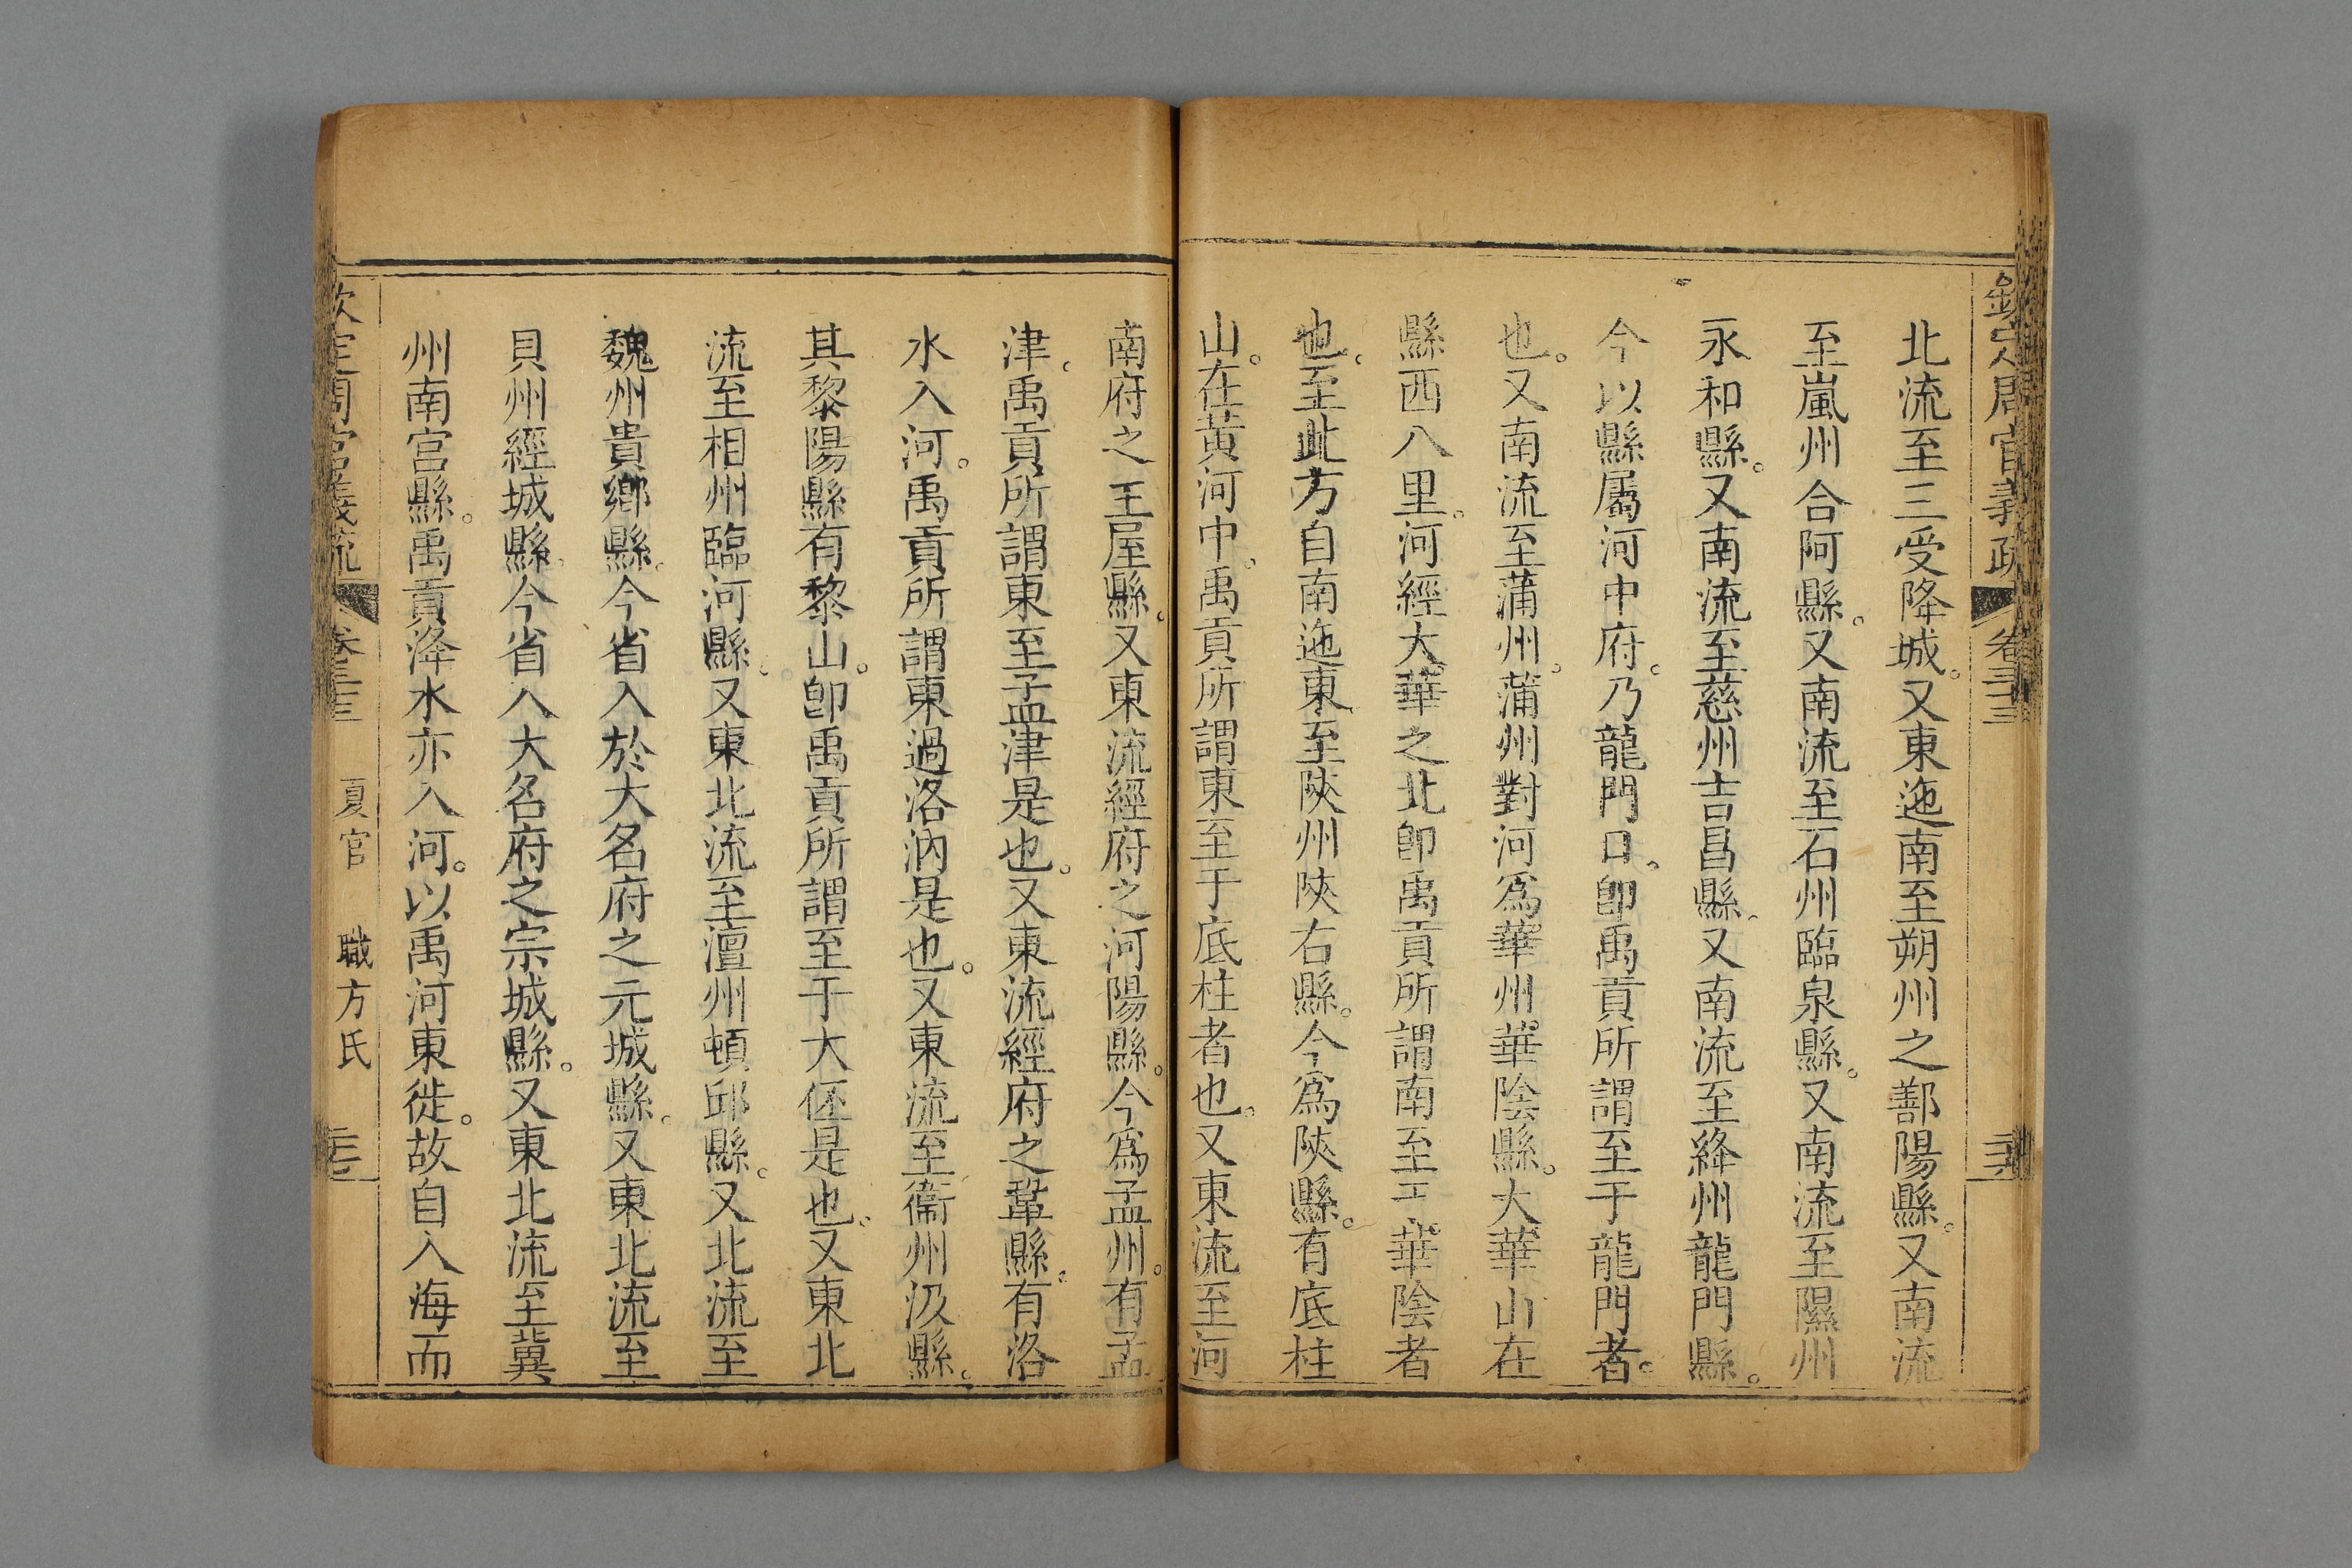 欽定周官義疏 卷三十三
北流至三受降城。又東迤南至朔州之鄯陽縣。又南流
至嵐州合阿縣。又南流至石州臨泉縣。又南流至隰州
永和縣。又南流至慈州吉昌縣。又南流至絳州龍門縣。
今以縣屬河中府。乃龍門口。卽禹貢所謂至于龍門者。
也。又南流至蒲州。蒲州對河爲華州。華陰縣。大華山在
縣西八里。河經大華之北卽禹貢所謂南至于華陰者
也。至此方自南迤東。至陝州陝右縣。今爲陝縣。有底柱
山。在黃河中。禹貢所謂東至于底柱者也。又東流至河
南府之王屋縣。又東流經府之河陽縣。今爲孟州。有孟
津。禹貢所謂東至孟津是也。又東流經府之鞏縣。有洛
水入河。禹貢所謂東過洛汭是也。又東流至衞州汲縣。
其黎陽縣有黎山。卽禹貢所謂至于大伾是也。又東北
流至相州臨河縣。又東北流至澶州頓邱縣。又北流至
魏州貴鄉縣。今省入於大名府之元城縣。又東北流至
貝州經城縣。今省入大名府之宗城縣。又東北流至冀
州南宫縣。禹貢洚水亦入河。以禹河東徙。故自入海而
欽定周官義疏 卷三十三 夏官 職方氏